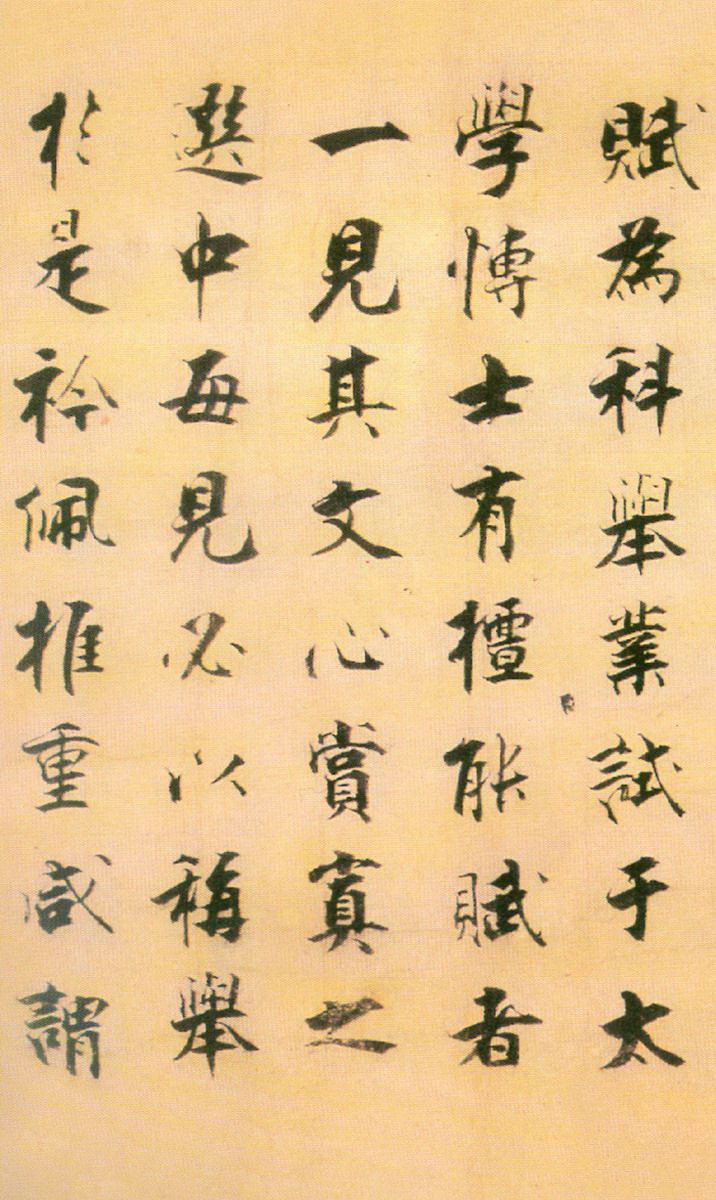 賦為科舉業試于太
學博士有擅能賦者
一見其文心賞寘之
選中每見必以稱舉
於是衿佩推重咸謂